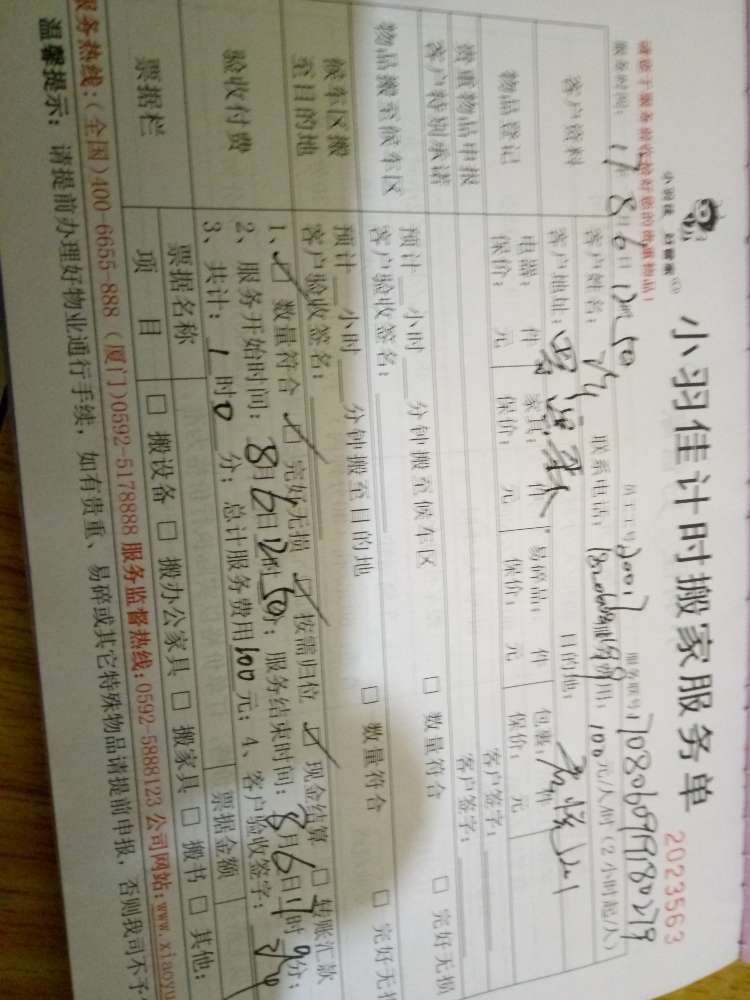 小羽佳 好管家
小羽佳计时搬家服务单
2023563
请您于服务前收捡好您的贵重物品!
服务时间: 17年8月6日12时50 员工工号: 2001 服务账号: 1708060991
客户资料 客户姓名: 联系电话: 服务费用: 100元/人/时(2小时起/人)
客户地址: 目的地:
物品登记 电器: 件 家具: 件 易碎品: 件 包裹: 件
保价: 元 保价: 元 保价: 元 保价: 元
贵重物品申报 客户签字:
客户特别承诺 客户签字:
物品搬至候车区 预计 小时 分钟搬至候车区 □ 数量符合 □ 完好无损
客户验收签名:
候车区搬至目的地 预计 小时 分钟搬至目的地 □ 数量符合 □ 完好无损
客户验收签名:
验收付费 1、☑ 数量符合 ☑ 完好无损 ☑ 按需归位 ☑ 现金结算 □ 转账汇款
2、服务开始时间: 8月6日12时50分; 服务结束时间: 8月6日 时 分;
3、共计: 1时0分; 总计服务费用100元; 4、客户验收签字:
票据栏 票据名称 票据金额
项 目 □ 搬设备 □ 搬办公家具 □ 搬家具 □ 搬书 □ 其他:
服务热线:(全国)400-6655-888 (厦门)0592-5178888 服务监督热线:0592-5888123 公司网站:www.xiaoyu
温馨提示: 请提前办理好物业通行手续, 如有贵重、易碎或其它特殊物品请提前申报, 否则我司不予